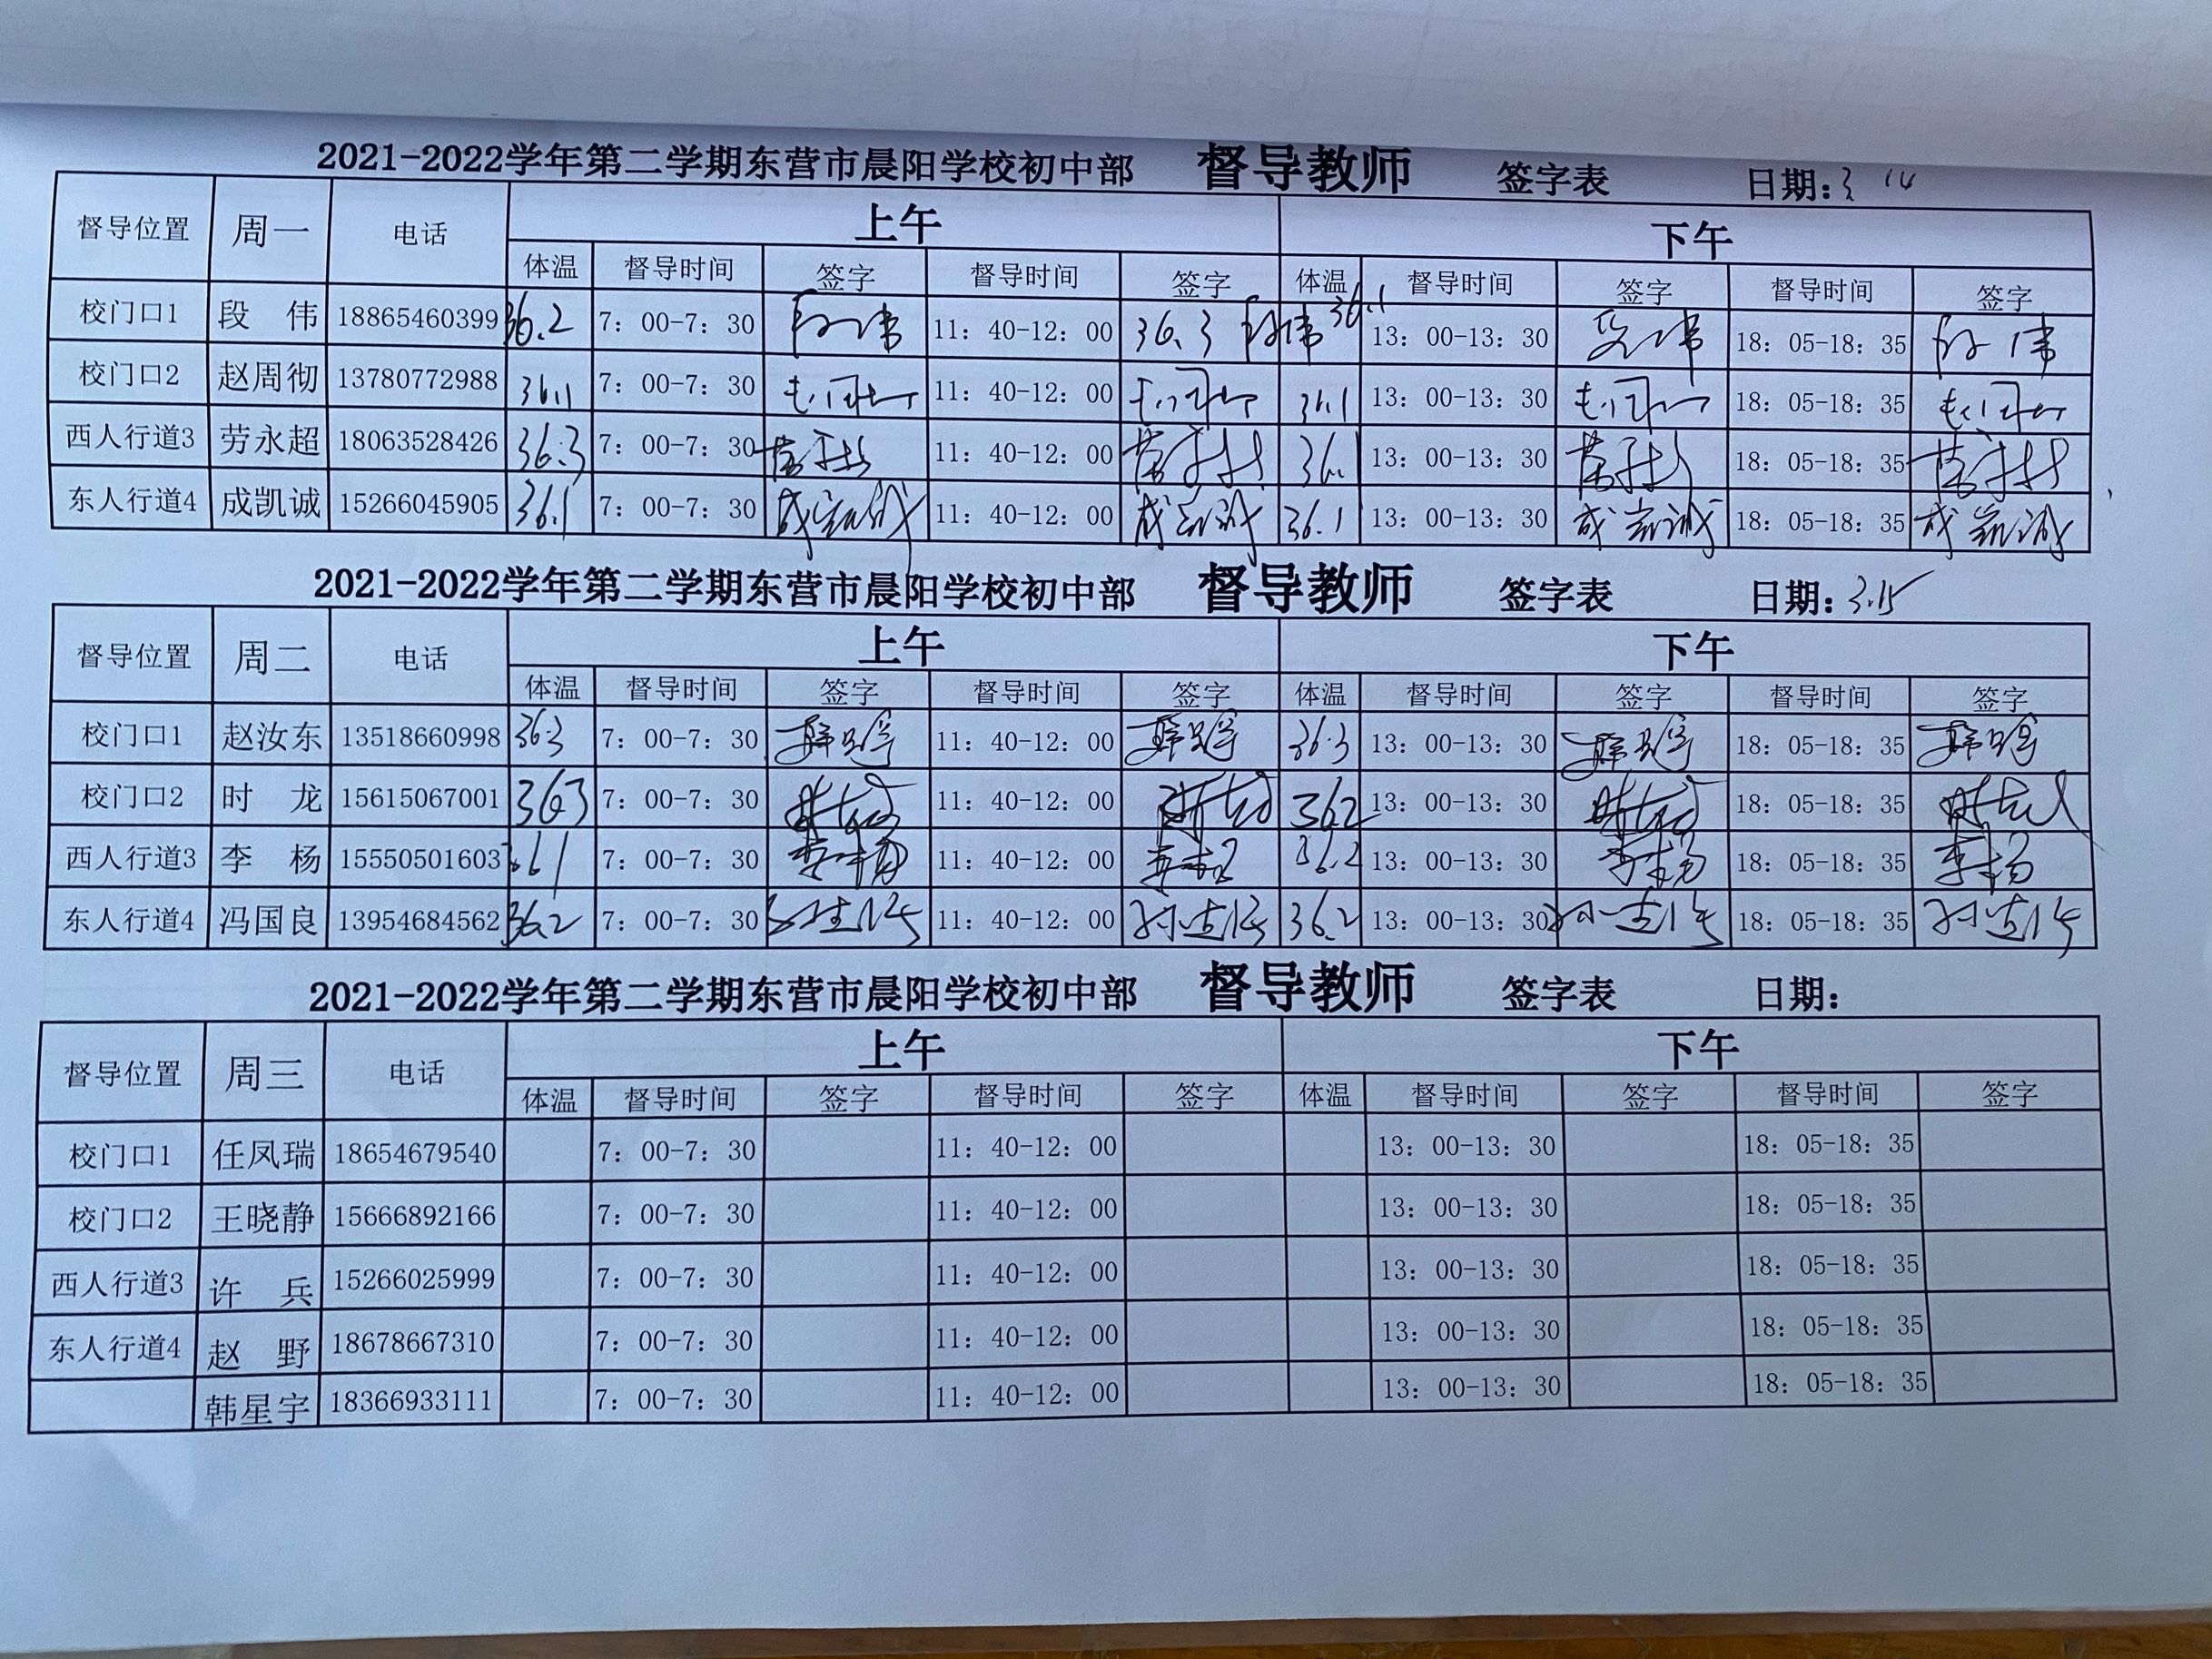 2021-2022学年第二学期东营市晨阳学校初中部 督导教师 签字表 日期：3 14
督导位置 周一 电话 上午 下午
体温 督导时间 签字 督导时间 签字 体温 督导时间 签字 督导时间 签字
校门口1 段 伟 18865460399 36.2 7：00-7：30 段伟 11：40-12：00 36.3 段伟 36.1 13：00-13：30 段伟 18：05-18：35 段伟
校门口2 赵周彻 13780772988 36.1 7：00-7：30 11：40-12：00 36.1 13：00-13：30 18：05-18：35
西人行道3 劳永超 18063528426 36.3 7：00-7：30 11：40-12：00 13：00-13：30 18：05-18：35
东人行道4 成凯诚 15266045905 36.1 7：00-7：30 成凯诚 11：40-12：00 成凯诚 36.1 13：00-13：30 成凯诚 18：05-18：35 成凯诚
2021-2022学年第二学期东营市晨阳学校初中部 督导教师 签字表 日期：3.15
督导位置 周二 电话 上午 下午
体温 督导时间 签字 督导时间 签字 体温 督导时间 签字 督导时间 签字
校门口1 赵汝东 13518660998 36.3 7：00-7：30 11：40-12：00 36.3 13：00-13：30 18：05-18：35
校门口2 时 龙 15615067001 363 7：00-7：30 时龙 11：40-12：00 时龙 362 13：00-13：30 时龙 18：05-18：35 时龙
西人行道3 李 杨 15550501603 361 7：00-7：30 李杨 11：40-12：00 李杨 36.2 13：00-13：30 李杨 18：05-18：35 李杨
东人行道4 冯国良 13954684562 36.2 7：00-7：30 11：40-12：00 36.2 13：00-13：30 18：05-18：35
2021-2022学年第二学期东营市晨阳学校初中部 督导教师 签字表 日期：
督导位置 周三 电话 上午 下午
体温 督导时间 签字 督导时间 签字 体温 督导时间 签字 督导时间 签字
校门口1 任凤瑞 18654679540 7：00-7：30 11：40-12：00 13：00-13：30 18：05-18：35
校门口2 王晓静 15666892166 7：00-7：30 11：40-12：00 13：00-13：30 18：05-18：35
西人行道3 许 兵 15266025999 7：00-7：30 11：40-12：00 13：00-13：30 18：05-18：35
东人行道4 赵 野 18678667310 7：00-7：30 11：40-12：00 13：00-13：30 18：05-18：35
韩星宇 18366933111 7：00-7：30 11：40-12：00 13：00-13：30 18：05-18：35